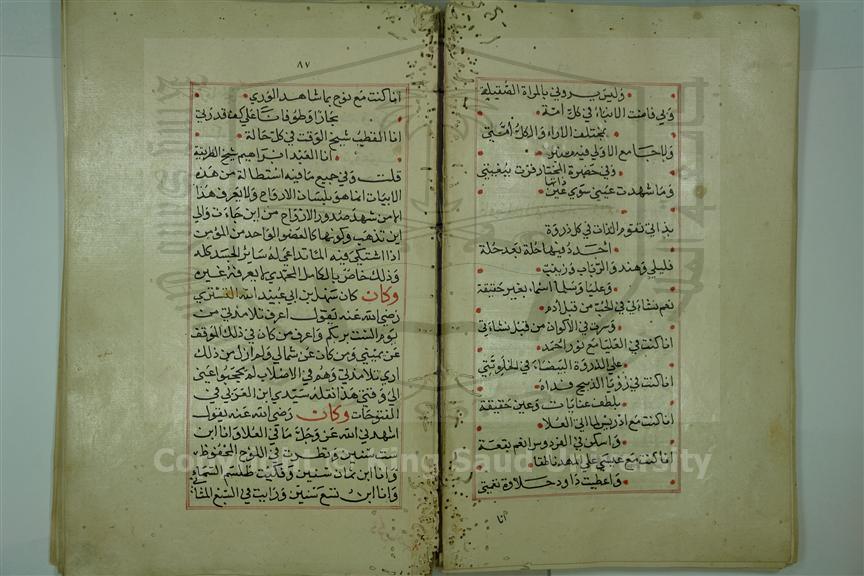 وليس يروني بالمراة الصقيلة
ولي قامت الانباء في كل امة
بمختلف الاراء والكل امتي
ولا جامع الا ولي فيه منبر
وفي حضرة المختار فزت ببغيتي
وما شهدت عيني سوي عين ذاتها
بذاتي تقوم الذات في كل ذروة
اجدد فيها حلة بعد حلة
فليلي وهند والرباب وزينب
وعليا وسلما اسماء بغير حقيقة
نعم نشاتي في الحب من قبل ادم
وسري في الاكوان من قبل نشاتي
انا كنت في العليا مع نور احمد
علي الدرة البيضاء في الخلوتي
انا كنت في رؤيا الذبيح فداه
بلطف عنايات وعين حقيقة
انا كنت مع ادريس لما اتي العلا
واسكن في الفردوس انعم بقعة
انا كنت مع عيسي علي المهد ناطقا
واعطيت داود حلاوة نغمتي
انا
٨٧
انا كنت مع نوح بما شاهد الوري
بحارا وطوفانا علي كف قدرتي
انا القطب شيخ الوقت في كل حالة
انا العبد ابراهيم شيخ الطريقة
قلت وفي جميع ما فيه استطالة من هذه
الابيات انما هو بلسان الارواح ولا يعرف هذا
الا من شهد صدور الارواح من اين جاءت والي
اين تذهب وكونها كالعضو الواحد من المؤمن
اذا اشتكي فيه الما تداعي له سائر الجسد كله
وذلك خاص بالكامل المحمدي لا يعرفه غيره
وكان سهل بن ابي عبيد الله التستري
رضي الله عنه يقول اعرف تلامذتي من
يوم الست بربكم واعرف من كان في ذلك الموقف
عن يميني ومن كان عن شمالي ولم ازل من ذلك
اري تلامذتي وهم في الاصلاب لم يحجبوا عني
الي وقتي هذا نقله سيدي ابن العربي في
الفتوحات وكان رضي الله عنه يقول
اشهدني الله عز وجل ما في العلا وانا ابن
ست سنين ونظرت في اللوح المحفوظ
وانا ابن ثمان سنين وفككت طلسم السماء
وانا ابن تسع سنين ورايت في السبع المثاني
Copyright © King Saud University